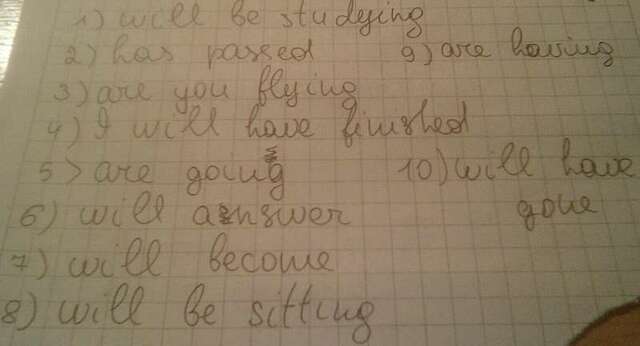 1) will be studying
2) has passed
3) are you flying
4) I will have finished
5) are going
6) will answer
7) will become
8) will be sitting
9) are having
10) will have
gone